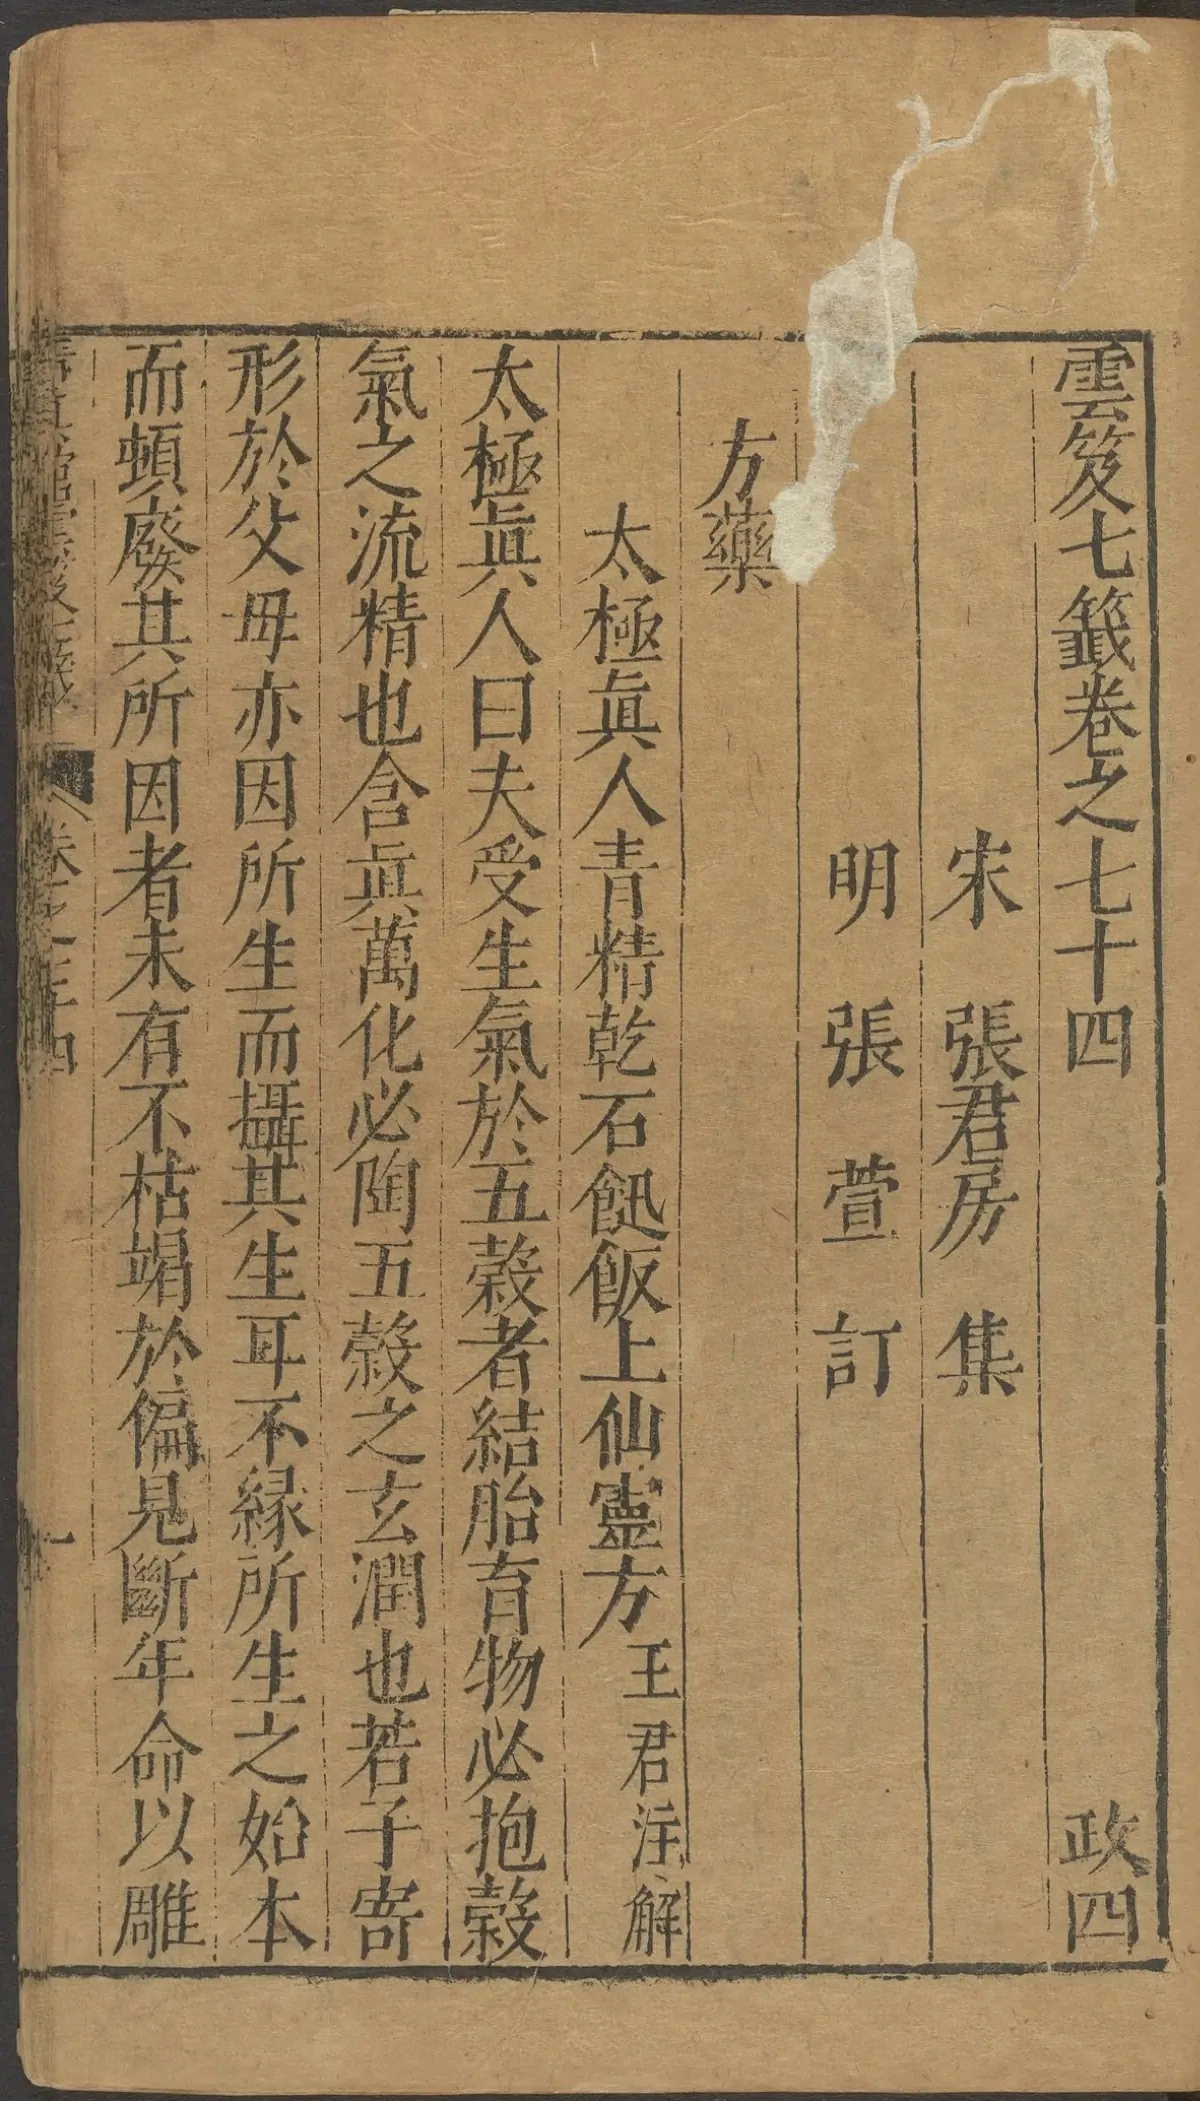 雲笈七籤卷之七十四　政四
宋　張君房　集
明　張　萱　訂
方藥
太極眞人青精乾石䭀飯上仙靈方王君注解
太極眞人曰夫受生氣於五穀者結胎育物必抱穀
氣之流精也含眞萬化必陶五穀之玄潤也若子寄
形於父母亦因所生而攝其生耳不緣所生之始本
而頓廢其所因者未有不枯竭於偏見斷年命以雕
卷之七十四　一